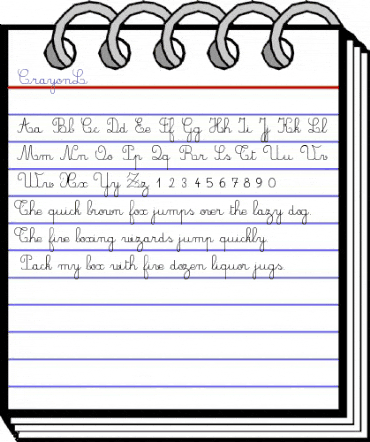 CrayonL
Aa Bb Cc Dd Ee Ff Gg Hh Ii Jj Kk Ll
Mm Nn Oo Pp Qq Rr Ss Tt Uu Vv
Ww Xx Yy Zz 1 2 3 4 5 6 7 8 9 0
The quick brown fox jumps over the lazy dog.
The five boxing wizards jump quickly.
Pack my box with five dozen liquor jugs.